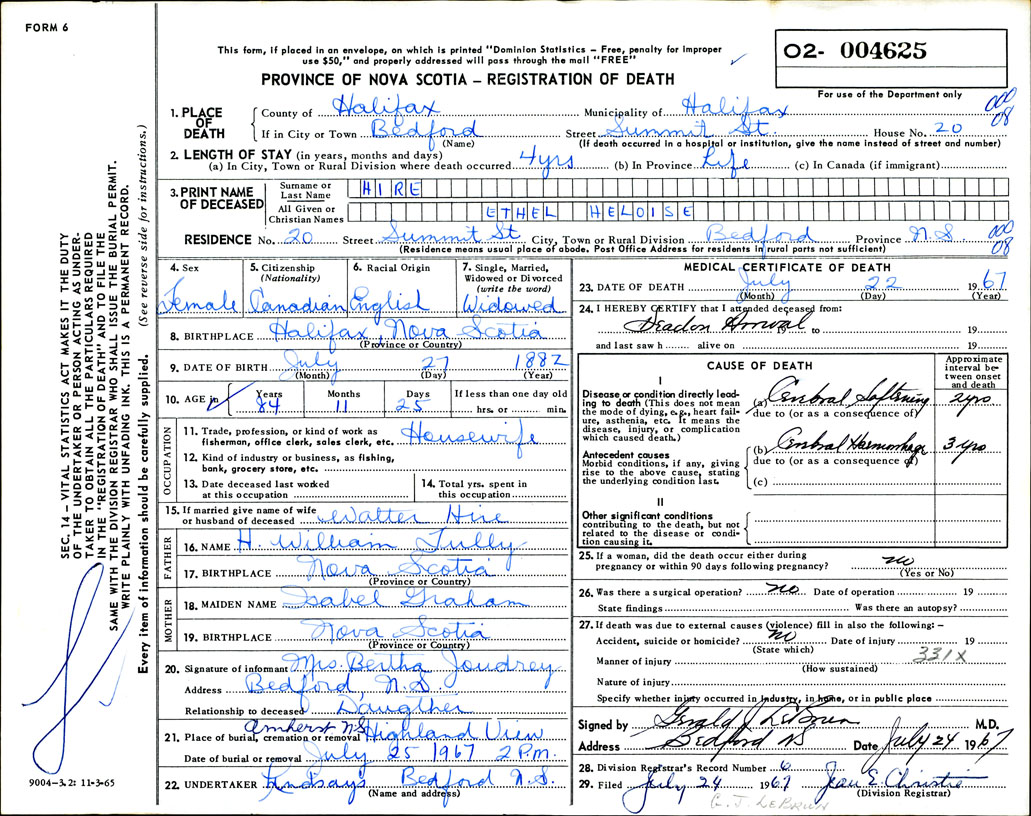 FORM 6
This form, if placed in an envelope, on which is printed "Dominion Statistics – Free, penalty for improper
use $50," and properly addressed will pass through the mail "FREE"
O2- 004625
For use of the Department only
PROVINCE OF NOVA SCOTIA – REGISTRATION OF DEATH
SEC. 14 – VITAL STATISTICS ACT MAKES IT THE DUTY
OF THE UNDERTAKER OR PERSON ACTING AS UNDER-
TAKER TO OBTAIN ALL THE PARTICULARS REQUIRED
IN THE "REGISTRATION OF DEATH" AND TO FILE THE
SAME WITH THE DIVISION REGISTRAR WHO SHALL ISSUE THE BURIAL PERMIT.
WRITE PLAINLY WITH UNFADING INK. THIS IS A PERMANENT RECORD.
Every item of information should be carefully supplied. (See reverse side for instructions.)
1. PLACE OF DEATH
County of Halifax Municipality of Halifax 000 08
If in City or Town Bedford Street Summit St. House No. 20
(Name) (If death occurred in a hospital or institution, give the name instead of street and number)
2. LENGTH OF STAY (in years, months and days)
(a) In City, Town or Rural Division where death occurred 4yrs (b) In Province Life (c) In Canada (if immigrant)
3. PRINT NAME OF DECEASED
Surname or Last Name HIRE
All Given or Christian Names ETHEL HELOISE
RESIDENCE No. 20 Street Summit St City, Town or Rural Division Bedford Province N.S. 000 08
(Residence means usual place of abode. Post Office Address for residents in rural parts not sufficient)
4. Sex Female
5. Citizenship (Nationality) Canadian
6. Racial Origin English
7. Single, Married, Widowed or Divorced (write the word) Widowed
8. BIRTHPLACE Halifax, Nova Scotia
(Province or Country)
9. DATE OF BIRTH July 27 1882
(Month) (Day) (Year)
10. AGE in Years 84 Months 11 Days 25 If less than one day old hrs. or min.
OCCUPATION
11. Trade, profession, or kind of work as Housewife
fisherman, office clerk, sales clerk, etc.
12. Kind of industry or business, as fishing,
bank, grocery store, etc.
13. Date deceased last worked at this occupation
14. Total yrs. spent in this occupation
15. If married give name of wife or husband of deceased Walter Hire
FATHER
16. NAME H. William Tully
17. BIRTHPLACE Nova Scotia
(Province or Country)
MOTHER
18. MAIDEN NAME Isabel Graham
19. BIRTHPLACE Nova Scotia
(Province or Country)
20. Signature of informant Mrs. Bertha Joudrey
Address Bedford, N.S.
Relationship to deceased Daugther
Amherst N.S
21. Place of burial, cremation or removal Highland View
Date of burial or removal July 25 1967 2 P.M.
22. UNDERTAKER Lindsay's Bedford N.S.
(Name and address)
9004–3.2: 11-3-65
MEDICAL CERTIFICATE OF DEATH
23. DATE OF DEATH July 22 1967
(Month) (Day) (Year)
24. I HEREBY CERTIFY that I attended deceased from:
Dead on Arrival to 19
and last saw h alive on 19
CAUSE OF DEATH
Approximate interval between onset and death
I
Disease or condition directly leading to death (This does not mean the mode of dying, e.g., heart failure, asthenia, etc. It means the disease, injury, or complication which caused death.)
(a) Cerebral Softening 2yrs
due to (or as a consequence of)
Antecedent causes
Morbid conditions, if any, giving rise to the above cause, stating the underlying condition last.
(b) Cerebral Haemorrhage 3 yrs
due to (or as a consequence of)
(c)
II
Other significant conditions
contributing to the death, but not related to the disease or condition causing it.
25. If a woman, did the death occur either during
pregnancy or within 90 days following pregnancy? no
(Yes or No)
26. Was there a surgical operation? no Date of operation 19
State findings Was there an autopsy?
27. If death was due to external causes (violence) fill in also the following: –
Accident, suicide or homicide? no Date of injury 19
(State which) 331X
Manner of injury
(How sustained)
Nature of injury
Specify whether injury occurred in industry, in home, or in public place
Signed by Gerald J LeBrun M.D.
Address Bedford NS Date July 24 1967
28. Division Registrar's Record Number 6
29. Filed July 24 1967 Jean E. Christie
(Division Registrar)
G. J. LEBRUN